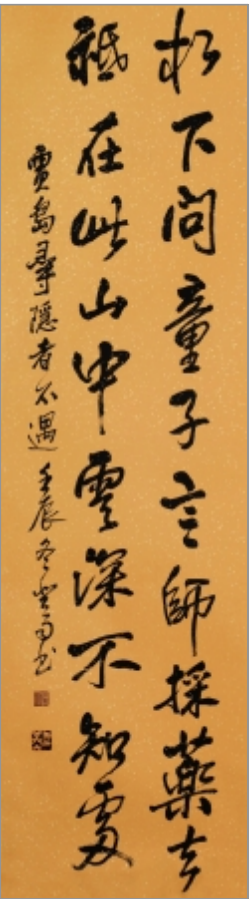 松下問童子言師採藥去
祗在此山中雲深不知處
賈島尋隱者不遇 壬辰冬 书